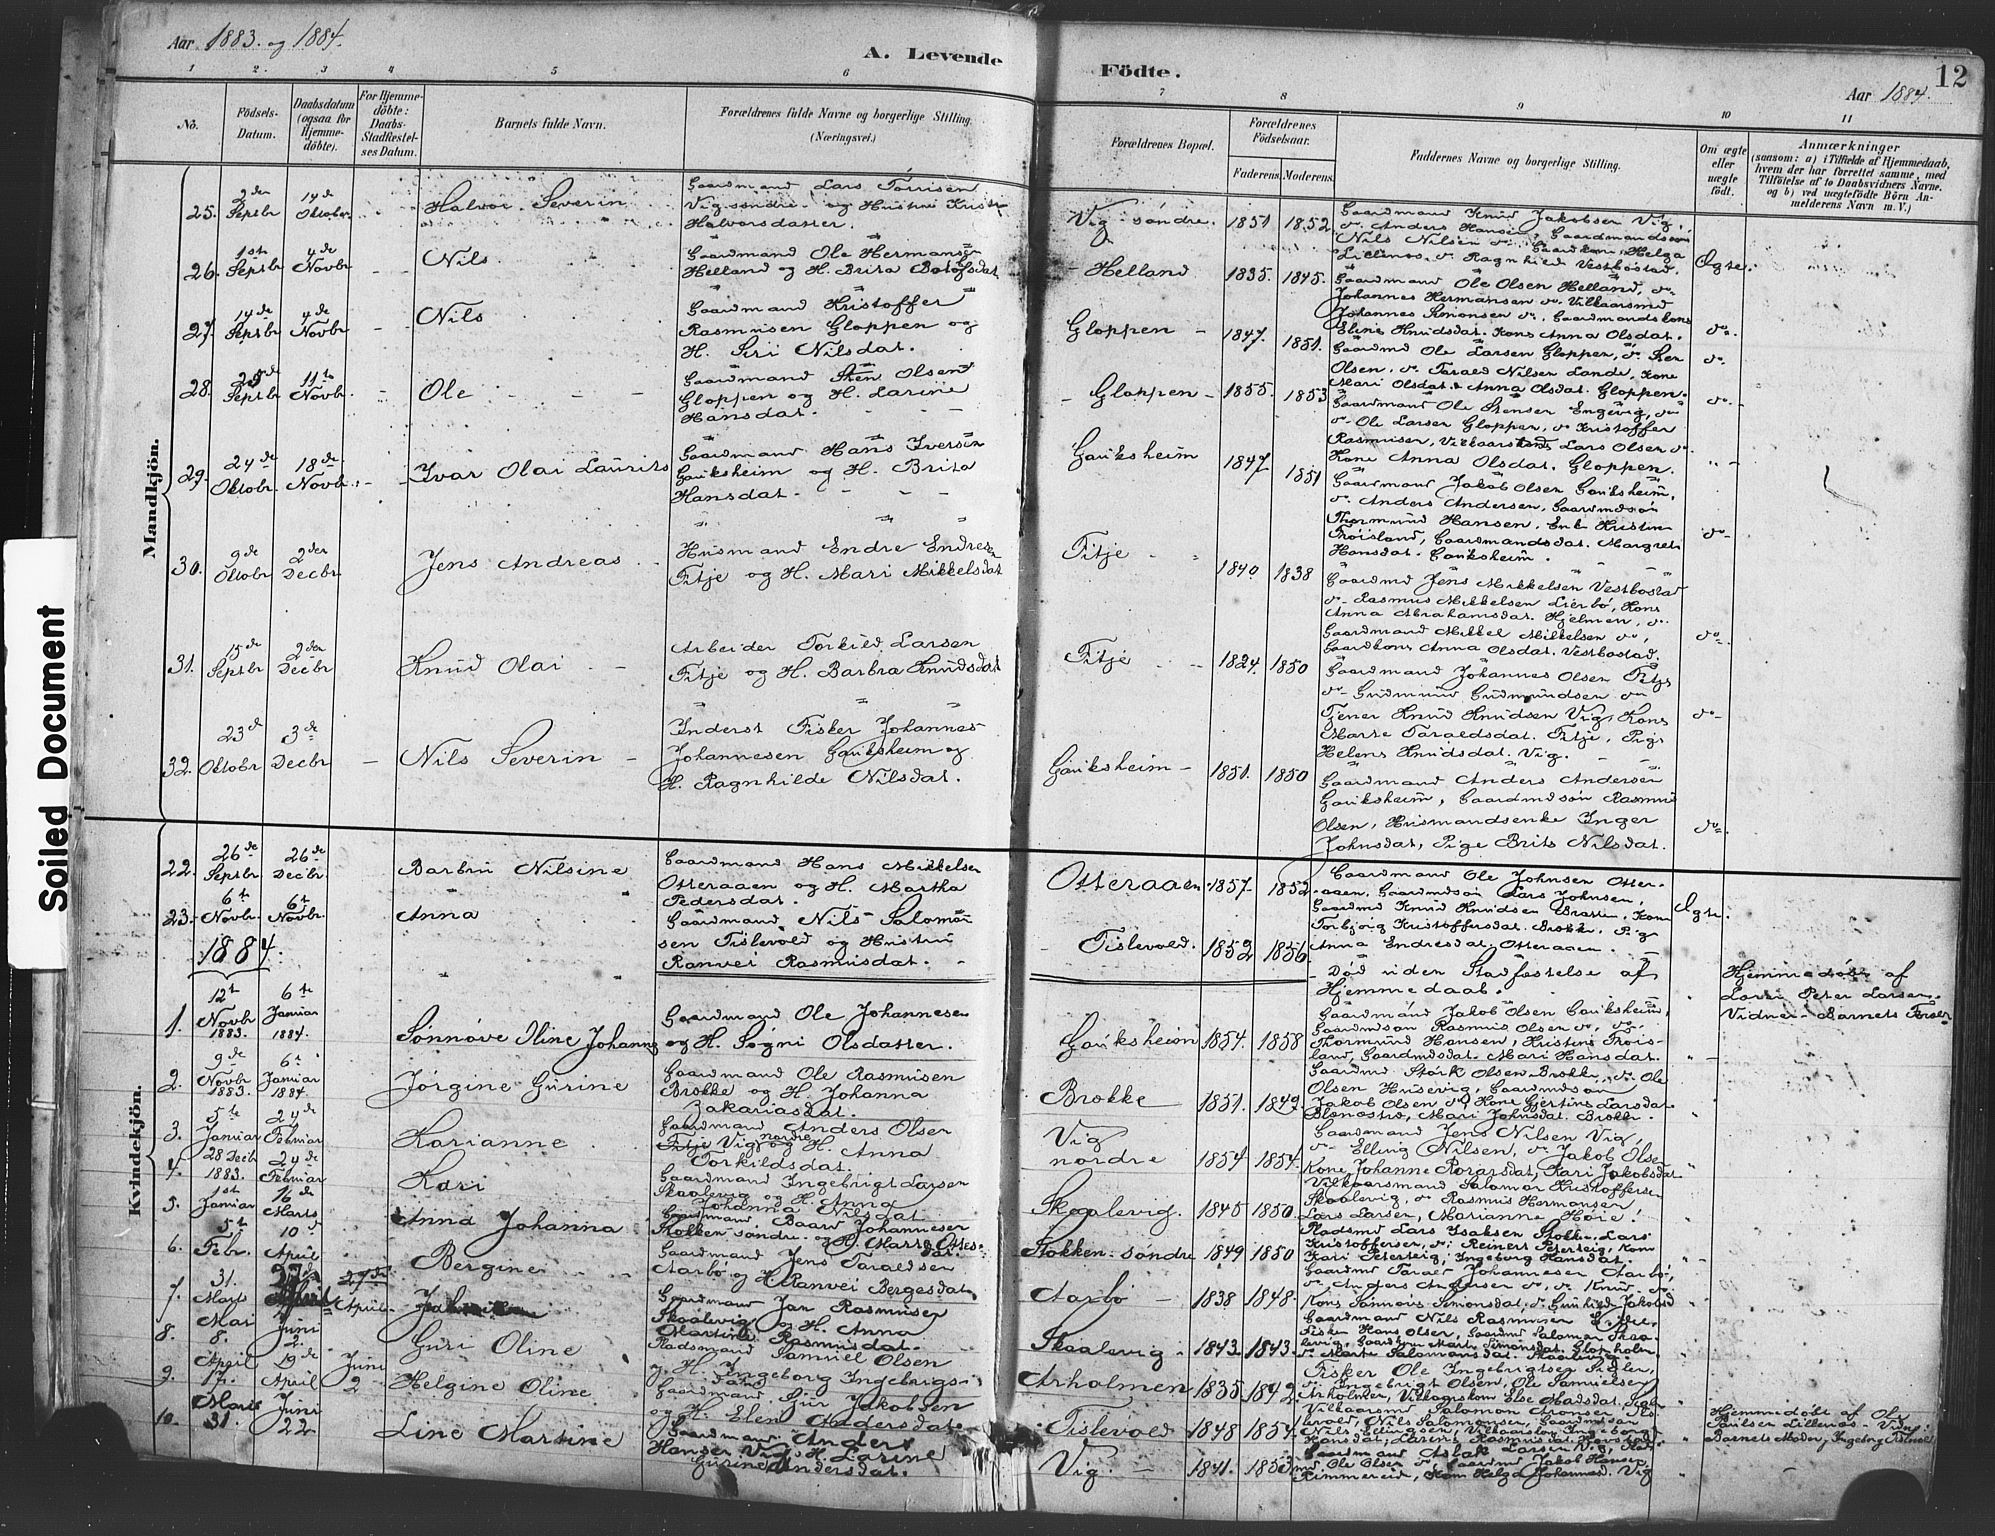 Aar 1883. og 1884.
A. Levende
Födte.
12
Aar 1884.
1 2. 3 4 5 6 7 8 9 10 11
No.
Födsels-
Datum.
Daabsdatum
(ogsaa for
Hjemme-
döbte).
For Hjemme-
döbte:
Daabs-
Stadfæstel-
ses Datum.
Barnets fulde Navn.
Forældrenes fulde Navne og borgerlige Stilling.
(Næringsvei.)
Forældrenes Bopæl.
Forældrenes
Födselsaar.
Faderens. Moderens.
Faddernes Navne og borgerlige Stilling.
Om ægte
eller
uægte
födt.
Anmærkninger
(saasom: a) i Tilfælde af Hjemmedaab,
hvem der har forrettet samme, med
Tilföielse af to Daabsvidners Navne.
og b) ved uægtefödte Börn An-
melderens Navn m. V.)
Mandkjön.
25. 2den Septbr 14de Oktober Halvor Severin
Gaardmand Lars Torrisen
Vig søndre og Hustru
Halvorsdatter.
Vig søndre. 1851 1852
Gaardmand Knud Jakobsen Vig,
do Anders Hansen, Gaardmandssøn
Nils Nilsen do, Gaardkone Helga
Lillenes, do Ragnhild Vestbøstad.
Ægte.
26. 1ste Septbr 4de Novbr Nils
Gaardmand Ole Hermansen
Helland og H. Brita
Helland 1835. 1845.
Gaardmand Ole Olsen Helland, do
Johannes Hermansen do Vilkaarsmd
Johannes Simonsen do, Gaardmandskone
Eline Knudsdat. Kone Anna Olsdat.
do
27. 14de Septbr 4de Novbr Nils
Gaardmand Kristoffer
Rasmusen Gloppen og
H. Siri Nilsdat.
Gloppen 1847. 1851.
Gaardmd Ole Larsen Gloppen, do Sten
Olsen, do Tarald Nilsen Lande, Kone
Mari Olsdat. Anna Olsdat. Gloppen.
do
28. Septbr 11te Novbr Ole
Gaardmand Sten Olsen
Gloppen og H. Larine
Hansdat.
Gloppen 1855. 1853
Gaardmand Ole Stensen Engevig, do
do Ole Larsen Gloppen, do Kristoffer
Rasmusen, Lars Olsen do
Kone Anna Olsdat. Gloppen.
do
29. 24de Oktobr. 18de Novbr. Ivar Olai Laurits
Gaardmand Hans Iversen
Gauksheim og H. Brita
Hansdat.
Gauksheim 1847 1851
Gaardmand Jakob Olsen Gauksheim,
do Anders Andersen, Gaardmdsøn
Thormund Hansen, Enke Kristine
Gaardmandsdat. Margrete
Hansdat. Gauksheim.
do
30. 9de Oktobr 2den Decbr Jens Andreas
Husmand Endre Endresen
Fitje og H. Mari Mikkelsdat
Fitje 1840 1838
Gaardmd Jens Mikkelsen Vestbøstad
do Rasmus Mikkelsen Lierbø, Kone
Anna Abrahamsdat. Hjelmen, do
Gaardmand Mikkel Mikkelsen do,
Gaardkone Anna Olsdat. Vestbøstad.
do
31. 15de Septbr 2den Decbr Knud Olai
Arbeider Torkild Larsen
Fitje og H. Barbra Knudsdat
Fitje 1824. 1850
Gaardmand Johannes Olsen Fitje
do Gudmund Gudmundsen do
Tjener Knud Knudsen Vig, Kone
Marte Taraldsdat. Fitje, Pige
Helene Knudsdat. Vig.
do
32. 23de Oktobr 3de Decbr Nils Severin
Inderst Fisker Johannes
Johannesen Gauksheim og
H. Ragnhilde Nilsdat.
Gauksheim 1851. 1850
Gaardmand Anders Andersen
Gauksheim, Gaardmdsøn Rasmus
Olsen, Husmandsenke Inger
Johnsdat, Pige Brits Nilsdat.
do
Kvindekjön.
22. 26de Septbr 26de Decbr Barbru Nilsine
Gaardmand Hans Mikkelsen
Otteraaen og H. Martha
Pedersdat.
Otteraaen 1857. 1852
Gaardmand Ole Johnsen Otter-
aaen, Gaardmdsøn Lars Johnsen,
Gaardmd Knud Knudsen Kone
Torbjørg Kristoffersdat. Brokke, Pige
Anna Endresdat. Otteraaen.
Ægte.
23. 6te Novbr. 6te Novbr. Anna
Gaardmand Nils Salomon-
sen Tislevold og Hustru
Ranvei Rasmusdat.
Tislevold. 1852 1856
Død uden Stadfestelse af
Hjemmedaab.
Hjemmedøbt af
Peter Larsen.
1884.
1. 12te Novbr 1883. 6te Januar 1884. Sønnøve Iline Johanne
Gaardmand Ole Johannesen
og H. Søgni Olsdatter.
Gauksheim 1854. 1858
Gaardmand Jakob Olsen Gauksheim,
Gaardmdsøn Rasmus Olsen do, do
Thormund Hansen, Kristine
Gaardmdsdat. Mari Hansdat.
2. 9de Novbr 1883. 6te Januar 1884. Jørgine Gurine
Gaardmand Ole Rasmusen
Brokke og H. Johanna
Zakariasdat.
Brokke 1851. 1849.
Gaardmd Størk Olsen Brokke, do Ole
Olsen Husevig, Gaardmdsøn
Jakob Olsen do, Kone Gjertine Larsdat.
Mari Johnsdat. Brokke.
3. 5te Januar 24de Februar Karianne
Gaardmand Anders Olsen
Fitje Vig nordre og H. Anna
Torkildsdat.
Vig
nordre 1854 1854.
Gaardmand Jens Nilsen Vig,
do Elling Nilsen, do Jakob Olsen
Kone Johanne Kari Jakobsdat
4. 28 Decbr 1883. 24de Februar Kari
Gaardmand Ingebrigt Larsen
Skaalevig og H. Anna
Johanna Nilsdat.
Skaalevig. 1845 1850.
Vilkaarsmand Salomon Kristoffersen
Skaalevig, do Rasmus Hermansen
Lars Larsen, Marianne Høie.
5. 1ste Januar 16de Marts Anna Johanna
Gaardmand Baard Johannesen
Stokken søndre og H. Marte
Stokken søndre 1849 1850
Pladsmd Lars Isaksen Stokke, Lars
Kristoffersen, do Reinert Peterteig, Kone
Kari Peterteig, Ingeborg Hansdat.
6. 5te Febr. 10de April Bergine
Gaardmand Jens Taraldsen
Aarbø og H. Ranvei Bergesdat.
Aarbø 1838 1848
Gaardmd Tarald Johannesen Aarbø,
do Anders Andersen do, do Knud do
Kone Sønnøis Simonsdat, do Gunhilde Jakobsd
7. 31. Marts 27de April
Gaardmand Jan Rasmusen
Skaalevig og H. Anna
Martine Rasmusdat.
Skaalevig 1843. 1843.
Gaardmand Nils Rasmusen
Fisker Hans Olsen, Gaardmd Salomon Skaa-
levig, Marte Simonsdat.
do Marte Salomonsdat. Skaalevig.
8. Mai 8. Juni 2. Guri Oline
Pladsmand Samuel Olsen
og H. Ingeborg Ingebrigs-
Arholmen 1835 1842.
Fisker Ole Ingebrigtsen
do Ingebrigt Olsen, Ole Samuelsen
Arholmen, Else Madsdat.
9. April 17. 19de April Juni 2 Helgine Oline
Gaardmand Jakobsen
og H. Elen Andersdat.
Tislevold 1848 1854.
Vilkaarsmd. Salomon
Nils Salomonsen, Gaardmdsøn
Nils Ellingsen, Ingeborg
Hansdat, Larine Rasmusdat.
Hjemmedøbt af Ole
Paulsen Lillenes.
Barnets Moder, Ingeborg Tislevold
10. Marts 31. Juni 22 Line Martine
Gaardmand Anders
Hansen Vig og H. Larine
Gurine Andersdat.
Vig. 1841. 1853.
Gaardmand Aslak Larsen Vig,
Ole Olsen do, Gaardmd Jakob Hansen
Rimmereid, Kone Helga Johannesd. Vig
Soiled Document